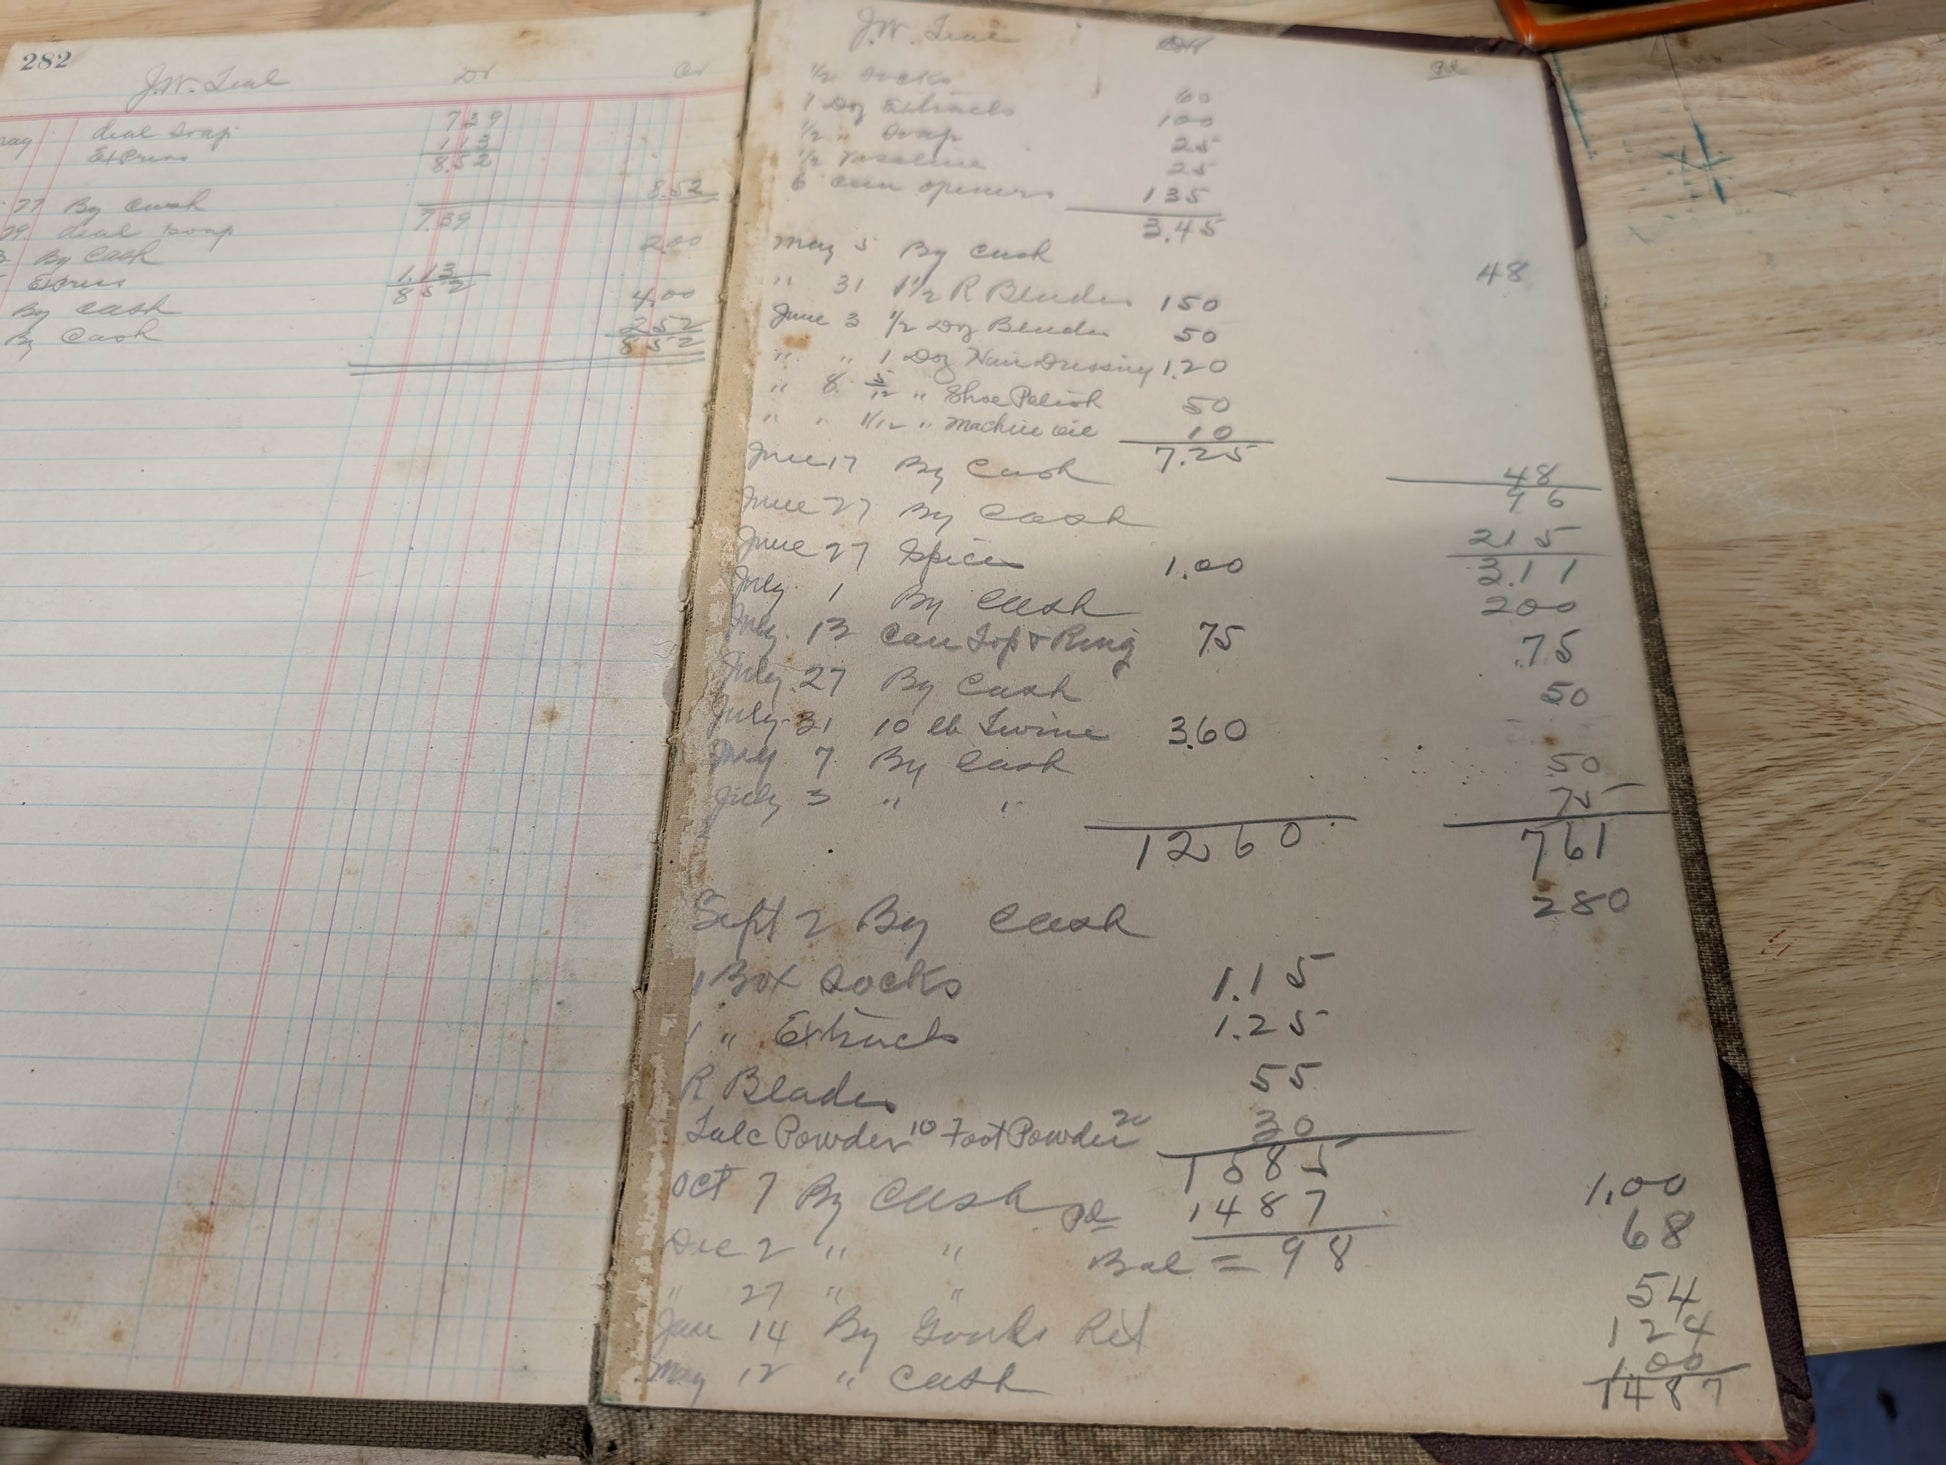 282
J.W. Teal Dr Cr
Deal Soap 7 39
Express 1 13
8.52
27 By Cash 8.52
29. Deal Soap 7.39
By Cash 2.00
Express 1.13
8 52
By Cash 4.00
By Cash 2 52
8 52
J.W. Teal Pd
1/2 Socks 60
1 Doz Extracts 100
1/2 " Soap 25
1/2 Vaseline 25
6 can openers 135
3.45
May 5 By Cash 48
" 31 1 1/2 R Blades 150
June 3 1/2 Doz Blades 50
" " 1 Doz Hair Dressing 1.20
" 8 5/12 " Shoe Polish 50
" " 1/12 " Machine oil 10
7.25
June 17 By Cash 48
96
June 27 By Cash 215
3.11
June 27 Spices 1.00
July 1 By Cash 200
July. 13 Can Top & Ring 75 .75
July. 27 By Cash 50
July. 31 10 lb Twine 3.60
7 By Cash 50
July 3 " " 75
1260 761
Sept 2 By Cash 280
1 Box Socks 1.15
1 " Extracts 1.25
R Blades 55
Talc Powder 10 Foot Powder 20 30
1585
Oct 7 By Cash 1.00
Pd 1487
Dec 2 " " 68
Bal = 98
" 27 " " 54
Jan 14 By Goods Ret 124
May 12 " Cash 1.00
1487